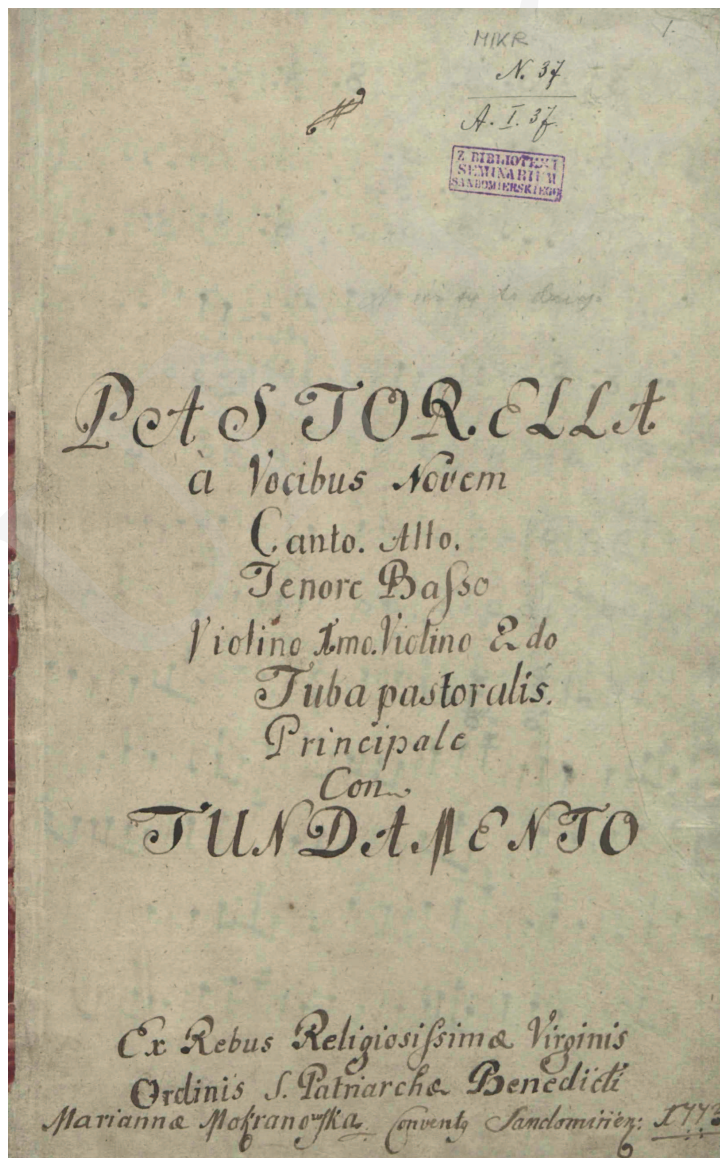 1.
MIKR
N. 37
A. I. 37
Z BIBLIOTEKI
SEMINARIUM
SANDOMIERSKIEGO
PASTORELLA
à Vocibus Novem
Canto. Alto.
Tenore Baſso
Violino Imo. Violino 2do
Tuba pastoralis.
Principale
Con
FUNDAMENTO
Ex Rebus Religiosiſsimæ Virginis
Ordinis S. Patriarchæ Benedicti
Mariannæ Mokranowſka Conventꝯ Sandomirien: 1773